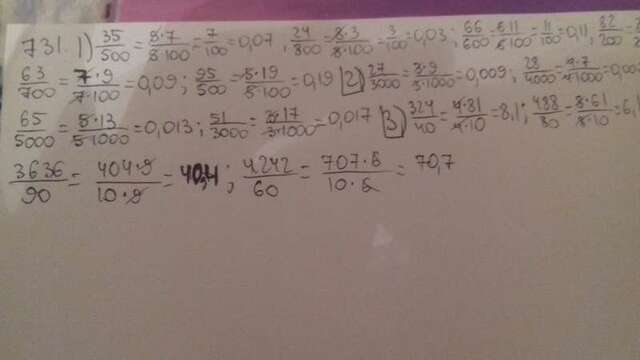 731. 1) 35/500 = 5·7/5·100 = 7/100 = 0,07 ; 24/800 = 8·3/8·100 = 3/100 = 0,03 ; 66/600 = 6·11/6·100 = 11/100 = 0,11 ; 82/200 =
63/700 = 7·9/7·100 = 0,09 ; 95/500 = 5·19/5·100 = 0,19 2) 27/3000 = 3·9/3·1000 = 0,009 ; 28/4000 = 4·7/4·1000 = 0,00
65/5000 = 5·13/5·1000 = 0,013 ; 51/3000 = 3·17/3·1000 = 0,017 3) 324/40 = 4·81/4·10 = 8,1 ; 488/80 = 8·61/8·10 = 6,1
3636/90 = 404·9/10·9 = 40,4 ; 4242/60 = 707·6/10·6 = 70,7